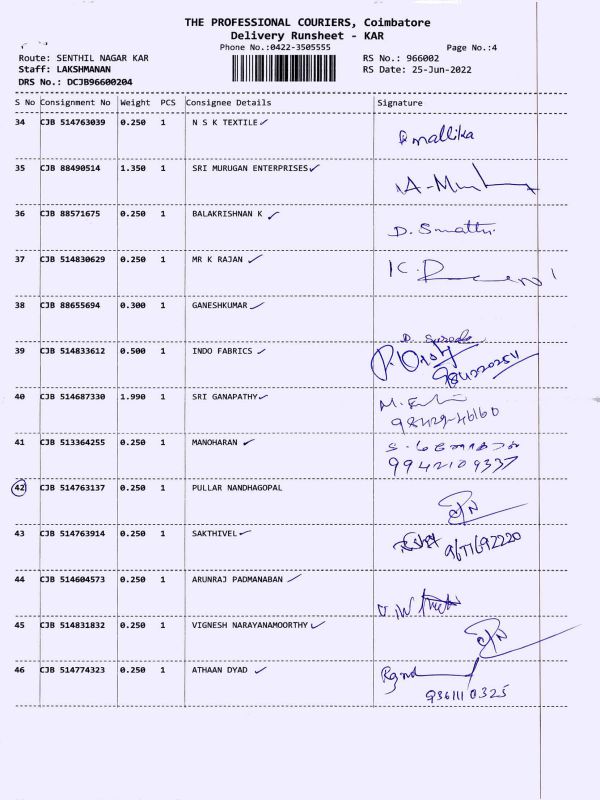 THE PROFESSIONAL COURIERS, Coimbatore
Delivery Runsheet - KAR
Phone No.:0422-3505555
Page No.:4
Route: SENTHIL NAGAR KAR
RS No.: 966002
Staff: LAKSHMANAN
RS Date: 25-Jun-2022
DRS No.: DCJB96600204
S No Consignment No Weight PCS Consignee Details Signature
34 CJB 514763039 0.250 1 N S K TEXTILE
Rmallika
35 CJB 88490514 1.350 1 SRI MURUGAN ENTERPRISES
36 CJB 88571675 0.250 1 BALAKRISHNAN K
D. Smathi
37 CJB 514830629 0.250 1 MR K RAJAN
38 CJB 88655694 0.300 1 GANESHKUMAR
39 CJB 514833612 0.500 1 INDO FABRICS
40 CJB 514687330 1.990 1 SRI GANAPATHY
41 CJB 513364255 0.250 1 MANOHARAN
9942109337
42 CJB 514763137 0.250 1 PULLAR NANDHAGOPAL
43 CJB 514763914 0.250 1 SAKTHIVEL
44 CJB 514604573 0.250 1 ARUNRAJ PADMANABAN
45 CJB 514831832 0.250 1 VIGNESH NARAYANAMOORTHY
46 CJB 514774323 0.250 1 ATHAAN DYAD